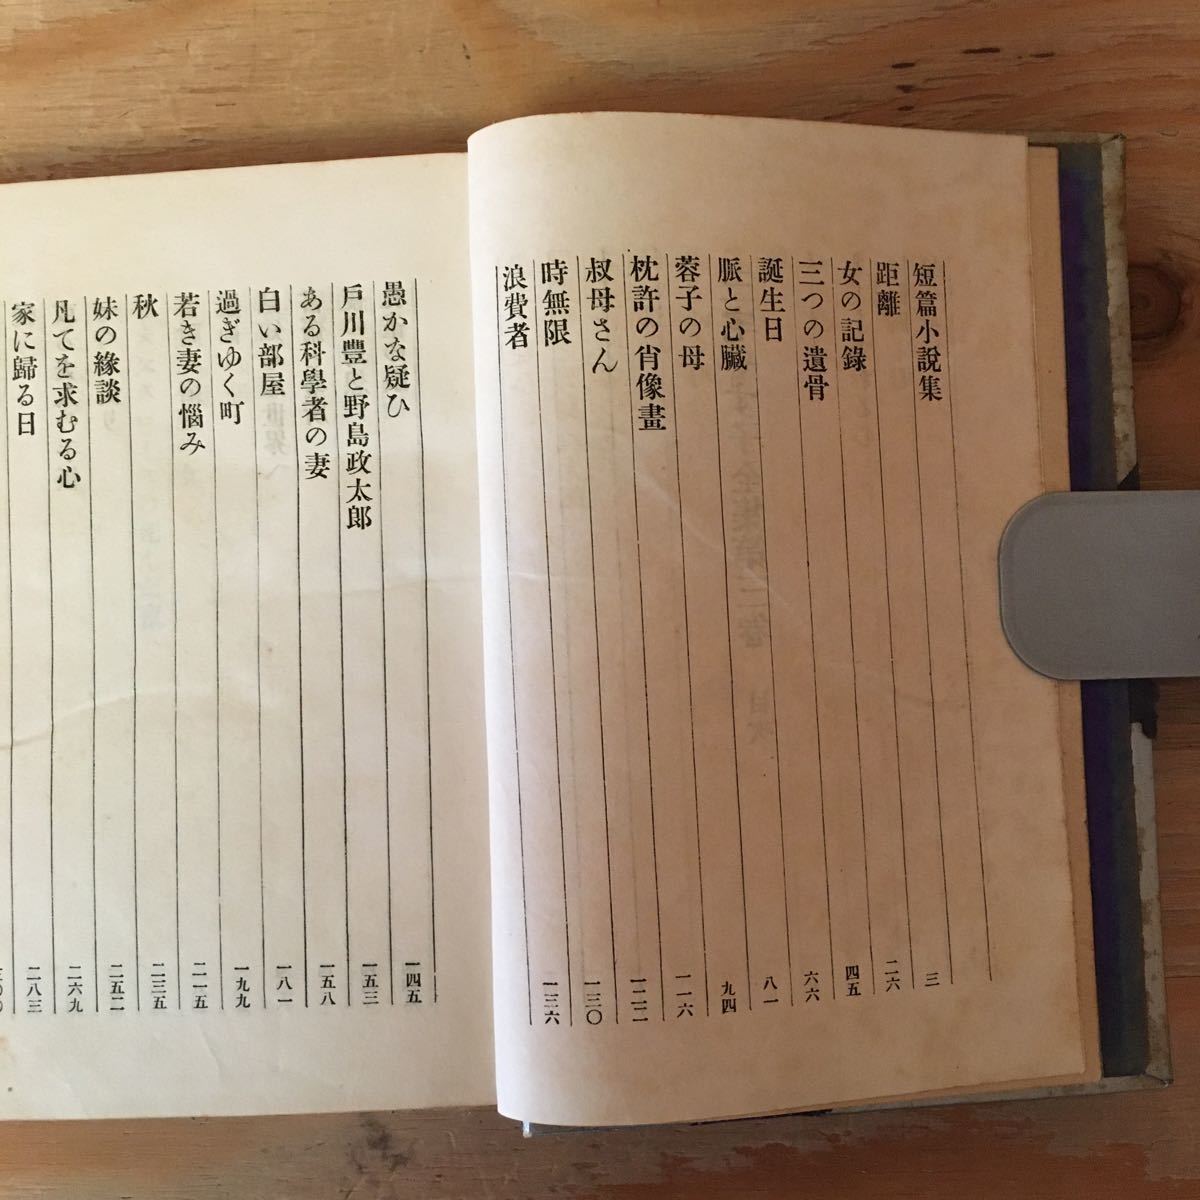 短篇小說集 三
距離 二六
女の記錄 四五
三つの遺骨 六六
誕生日 八一
脈と心臟 九四
蓉子の母 一一六
枕許の肖像畫 一二二
叔母さん 一三〇
時無限 一三六
浪費者
愚かな疑ひ 一四五
戶川豐と野島政太郎 一五三
ある科學者の妻 一五八
白い部屋 一八一
過ぎゆく町 一九九
若き妻の惱み 二一五
秋 二三五
妹の緣談 二五二
凡てを求むる心 二六九
家に歸る日 二八三